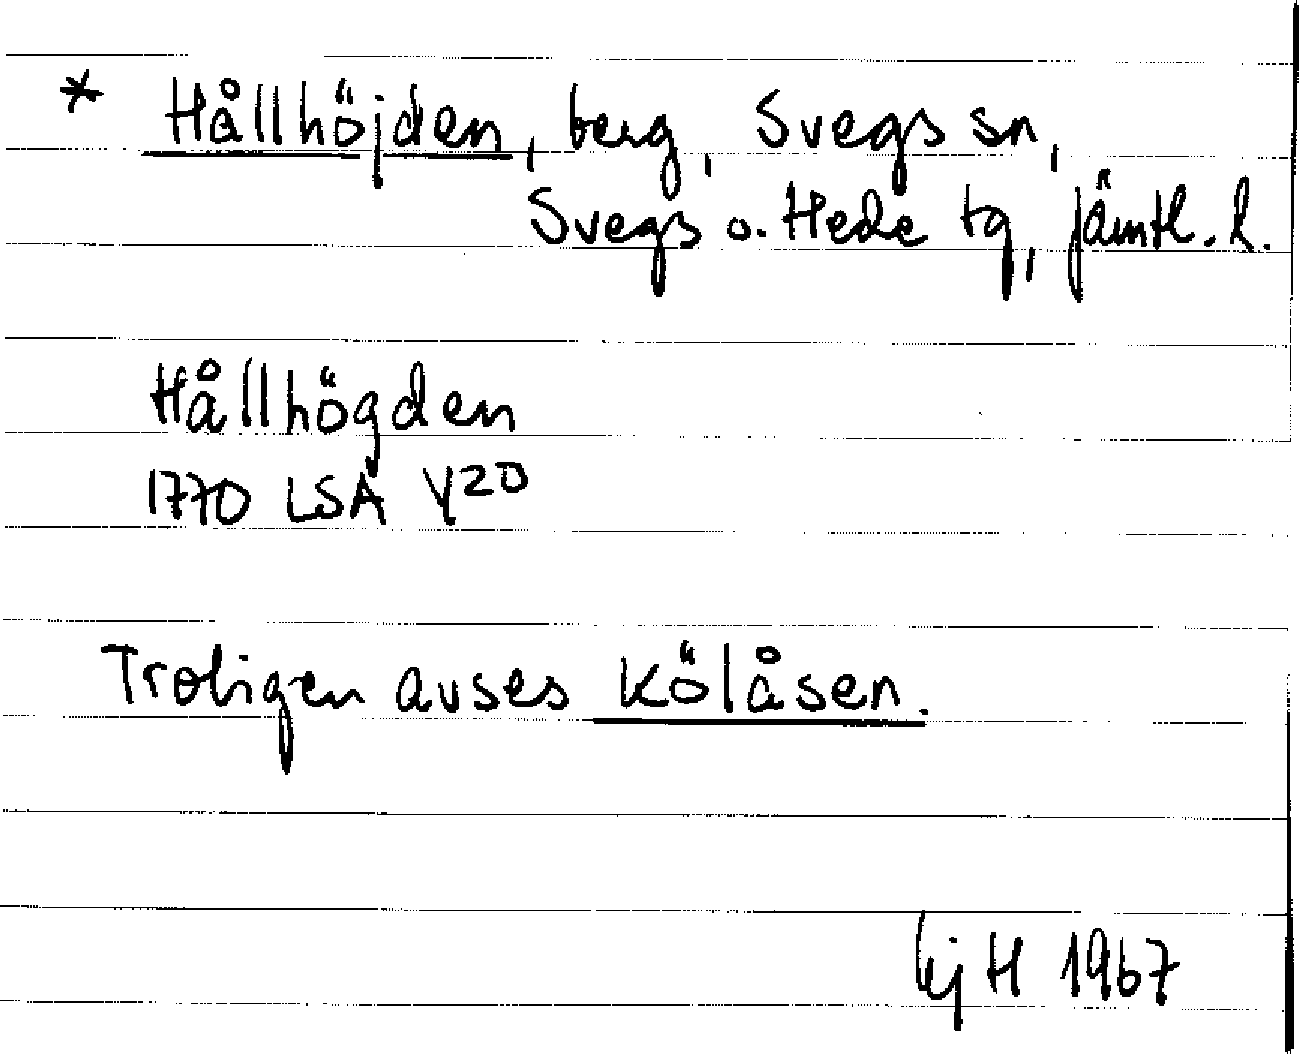 * Hållhöjden, berg, Svegs sn,
Svegs o. Hede tg, Jämtl. l.
Hållhögden
1770 LSA Y20
Troligen avses Kölåsen.
kj H 1967